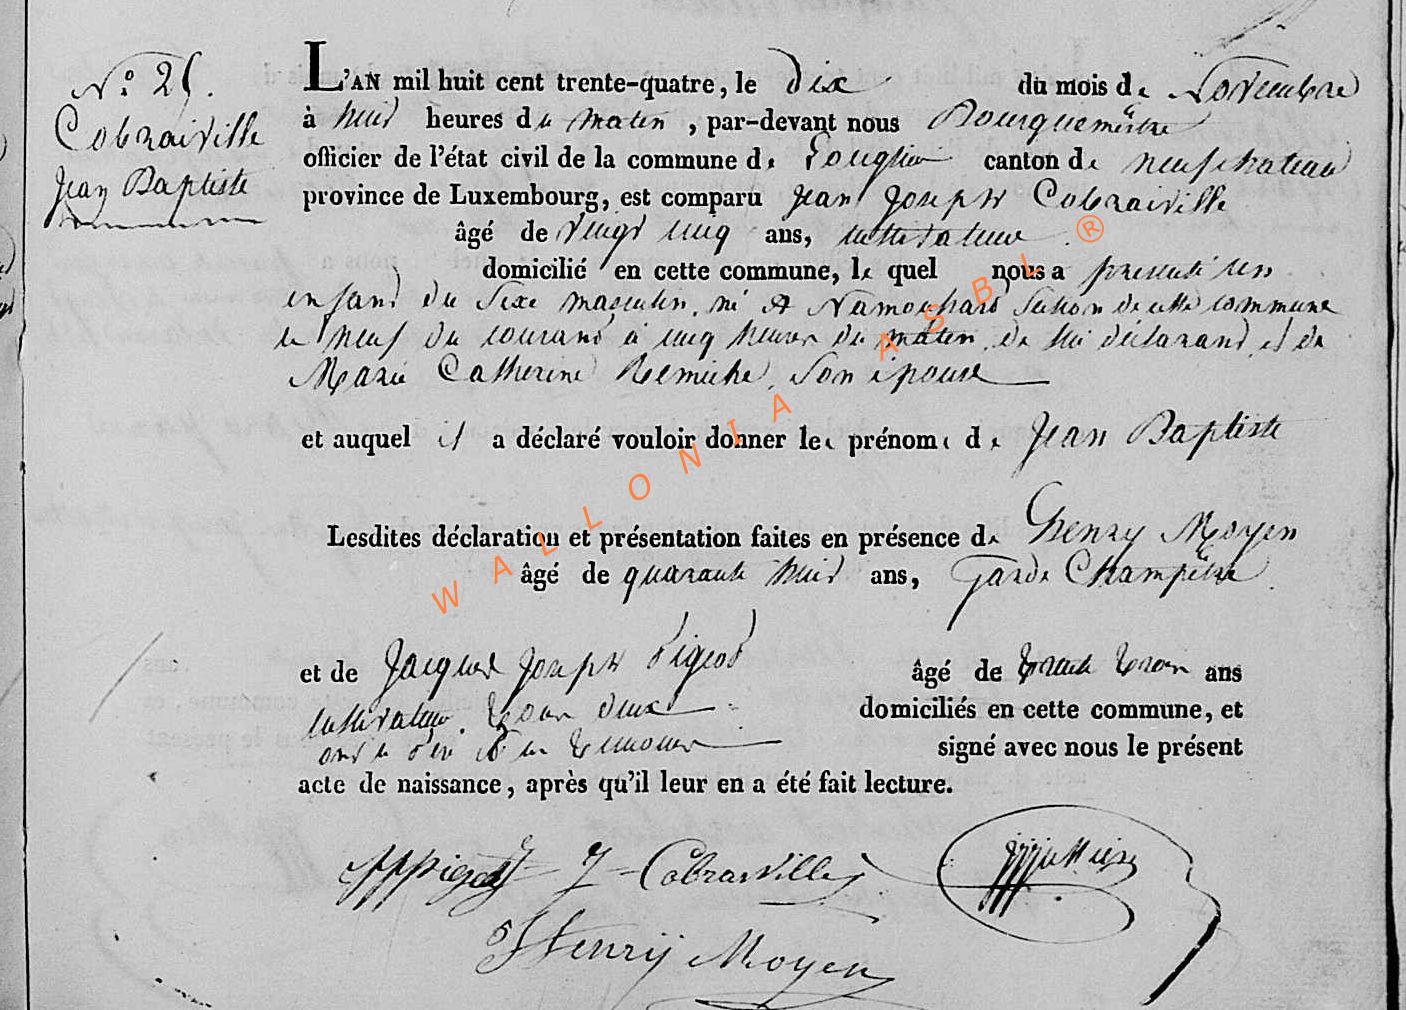 N.° 25.
Cobraiville
Jean Baptiste
L'AN mil huit cent trente-quatre, le Dix du mois de Novembre
à huit heures du matin, par-devant nous Bourguemêstre
officier de l'état civil de la commune de Longlier canton de neufchateau
province de Luxembourg, est comparu Jean Joseph Cobraiville
âgé de vingt cinq ans, cultivateur
domicilié en cette commune, le quel nous a presenté un
enfant du Sexe masculin, né à Namoussart Section de cette commune
le neuf du courant à cinq heures du matin, de lui déclarant et de
Marie Catherine Remiche, Son épouse
et auquel il a déclaré vouloir donner les prénoms de Jean Baptiste
Lesdites déclaration et présentation faites en présence de Henry Moyen
âgé de quarante huit ans, Garde Champêtre
et de Jacques Joseph Pigeot âgé de trente trois ans
cultivateur tous deux domiciliés en cette commune, et
ont le père et les temoins signé avec nous le présent
acte de naissance, après qu'il leur en a été fait lecture.
J Cobraiville
Henry Moyen
WALLONIA ASBL ®